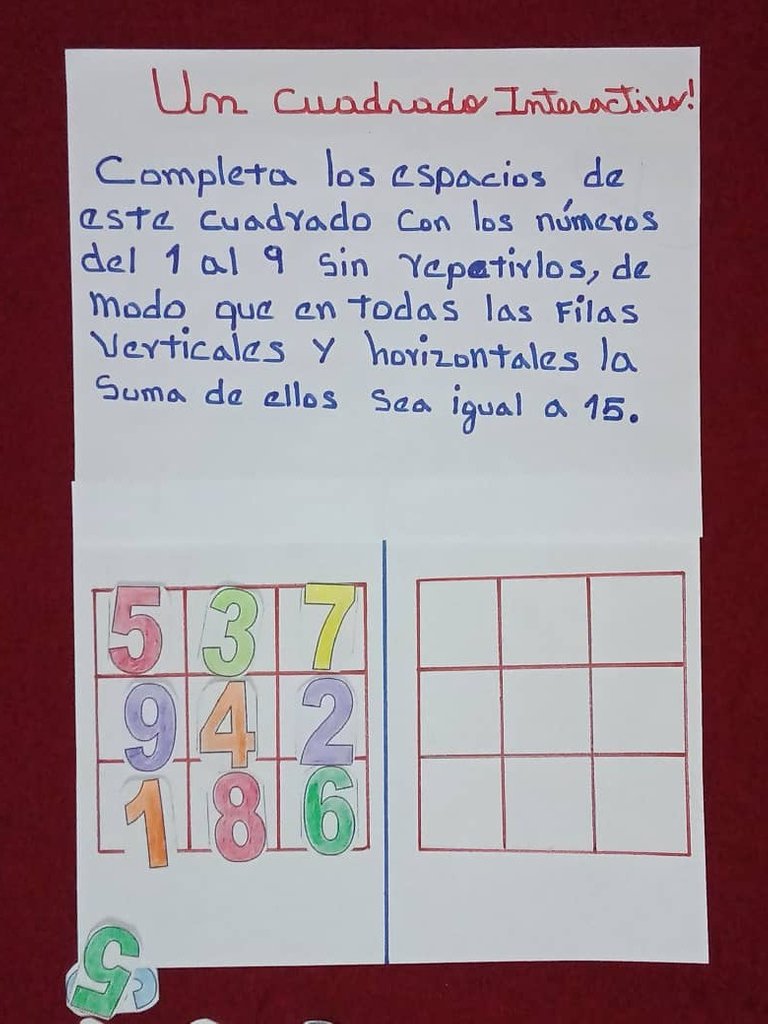 Un cuadrado Interactivo!
Completa los espacios de
este cuadrado con los números
del 1 al 9 sin repetirlos, de
modo que en todas las Filas
Verticales y horizontales la
Suma de ellos sea igual a 15.
5 3 7
9 4 2
1 8 6
5